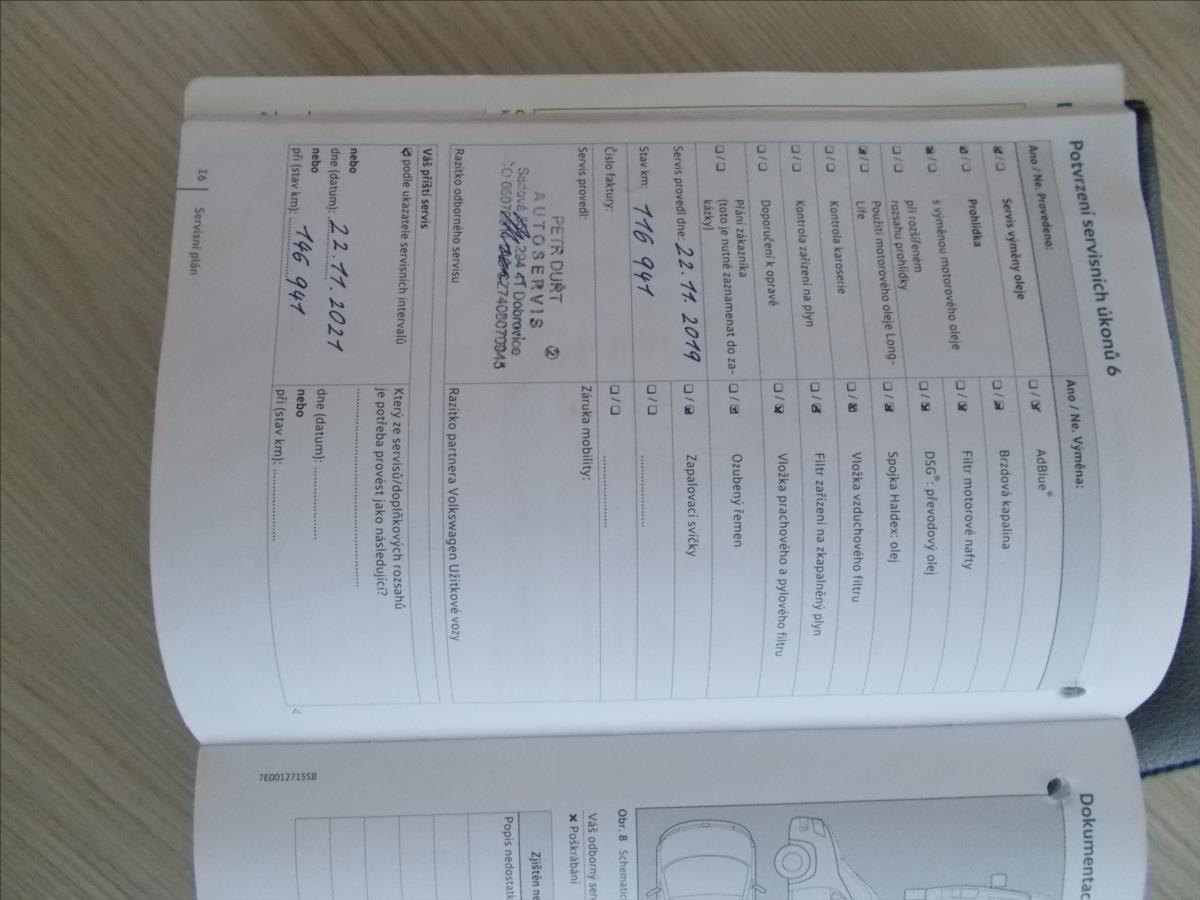 Potvrzení servisních úkonů 6
Ano / Ne. Provedeno:
☑ / ☐ Servis výměny oleje
Prohlídka
☑ / ☐ s výměnou motorového oleje
☑ / ☐ při rozšířeném
rozsahu prohlídky
☐ / ☐ Použití motorového oleje Long-
☑ / ☐ Life
☐ / ☐ Kontrola karoserie
☐ / ☐ Kontrola zařízení na plyn
☐ / ☐ Doporučení k opravě
☐ / ☐ Přání zákazníka
(toto je nutné zaznamenat do za-
kázky)
Servis provedl dne: 22.11.2019
Stav km: 116 941
Číslo faktury:
Servis provedl:
PETR DUŘT
AUTOSERVIS ②
Sadová 294 41 Dobrovice
Razítko odborného servisu
Ano / Ne. Výměna:
☐ / ☑ AdBlue®
☐ / ☑ Brzdová kapalina
☐ / ☑ Filtr motorové nafty
☐ / ☑ DSG®: převodový olej
☐ / ☑ Spojka Haldex: olej
☐ / ☑ Vložka vzduchového filtru
☐ / ☑ Filtr zařízení na zkapalněný plyn
☐ / ☑ Vložka prachového a pylového filtru
☐ / ☑ Ozubený řemen
☐ / ☑ Zapalovací svíčky
☐ / ☐ ....................
☐ / ☐ ....................
Záruka mobility:
Razítko partnera Volkswagen Užitkové vozy
Váš příští servis
☑ podle ukazatele servisních intervalů
nebo
dne (datum): 22.11.2021
nebo
při (stav km): 146 941
Který ze servisů/doplňkových rozsahů
je potřeba provést jako následující?
..................................................
dne (datum): ....................
nebo
při (stav km): ....................
16 Servisní plán
Dokumentac
Obr. 8 Schematic
Váš odborný ser
✖ Poškrábání
Zjištěn ne
Popis nedostatk
7E0012715SB